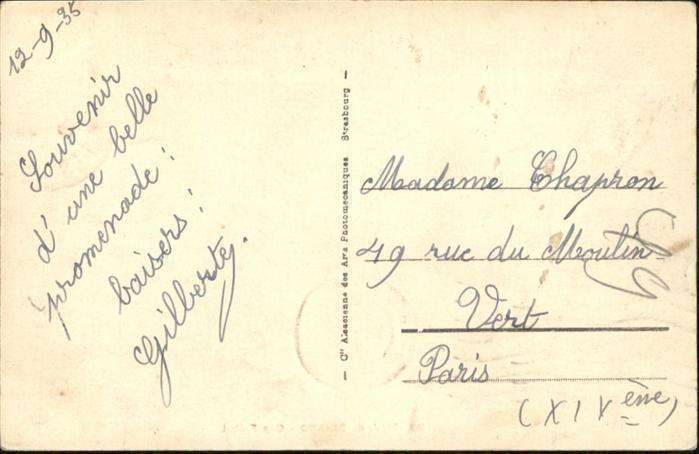 12-9-35
Souvenir
d'une belle
promenade!
baisers!
Gilberte.
— Cie Alsacienne des Arts Photomécaniques Strasbourg —
Madame Chapron
49 rue du Moulin
Vert
Paris
(XIVème)